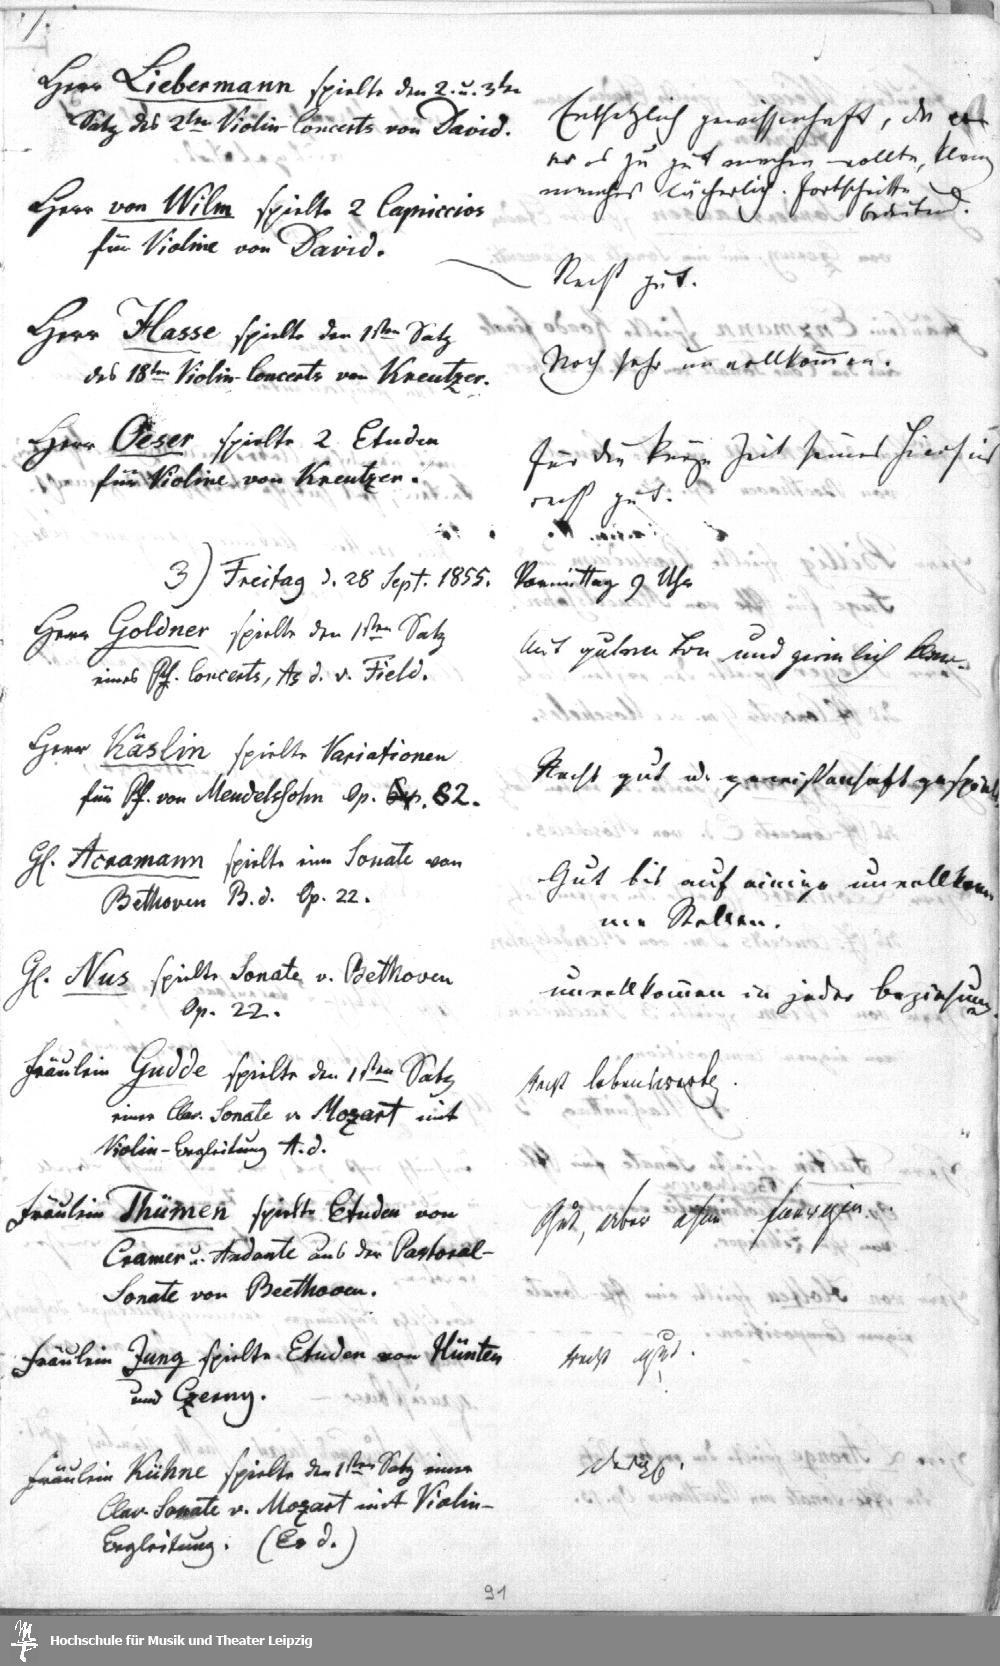 Herr Liebermann spielte den 2. u. 3ten
Satz des 2ten Violin-Concerts von David.
Entsetzlich gewissenhaft, da er
er es zu gut machen wollte, klang
manches lächerlich. Fortschritte
bedeutend.
Herr von Wilm spielte 2 Capriccios
für Violine von David.
Recht gut.
Herr Hasse spielte den 1sten Satz
des 18ten Violin-Concerts von Kreutzer.
Noch sehr unvollkommen.
Herr Oeser spielte 2 Etuden
für Violine von Kreutzer.
Für die kurze Zeit seines Hierseins
recht gut.
3) Freitag d. 28 Sept. 1855. Vormittag 9 Uhr
Herr Goldner spielte den 1sten Satz
eines Pf. Concerts, As d. v. Field.
Mit gutem Ton und ziemlich klar.
Herr Käslin spielte Variationen
für Pf. von Mendelssohn Op. 82.
Recht gut u. gewissenhaft gespielt.
Hl. Acramann spielte eine Sonate von
Bethoven B. d. Op. 22.
Gut bis auf einige unvollkom
mne Stellen.
Hl. Nus spielte Sonate v. Bethoven
Op. 22.
unvollkommen in jeder Beziehung.
Fräulein Gudde spielte den 1sten Satz
einer Clav. Sonate v. Mozart mit
Violin-Begleitung A. d.
Recht lobenswerth.
Fräulein Thümen spielte Etuden von
Cramer u. Andante aus der Pastoral-
Sonate von Beethoven.
Gut, aber ohne
Fräulein Jung spielte Etuden von Hünten
und Czerny.
Recht gut.
Fräulein Kühne spielte den 1sten Satz einer
Clav. Sonate v. Mozart mit Violin-
Begleitung. (Es d.)
91
Hochschule für Musik und Theater Leipzig